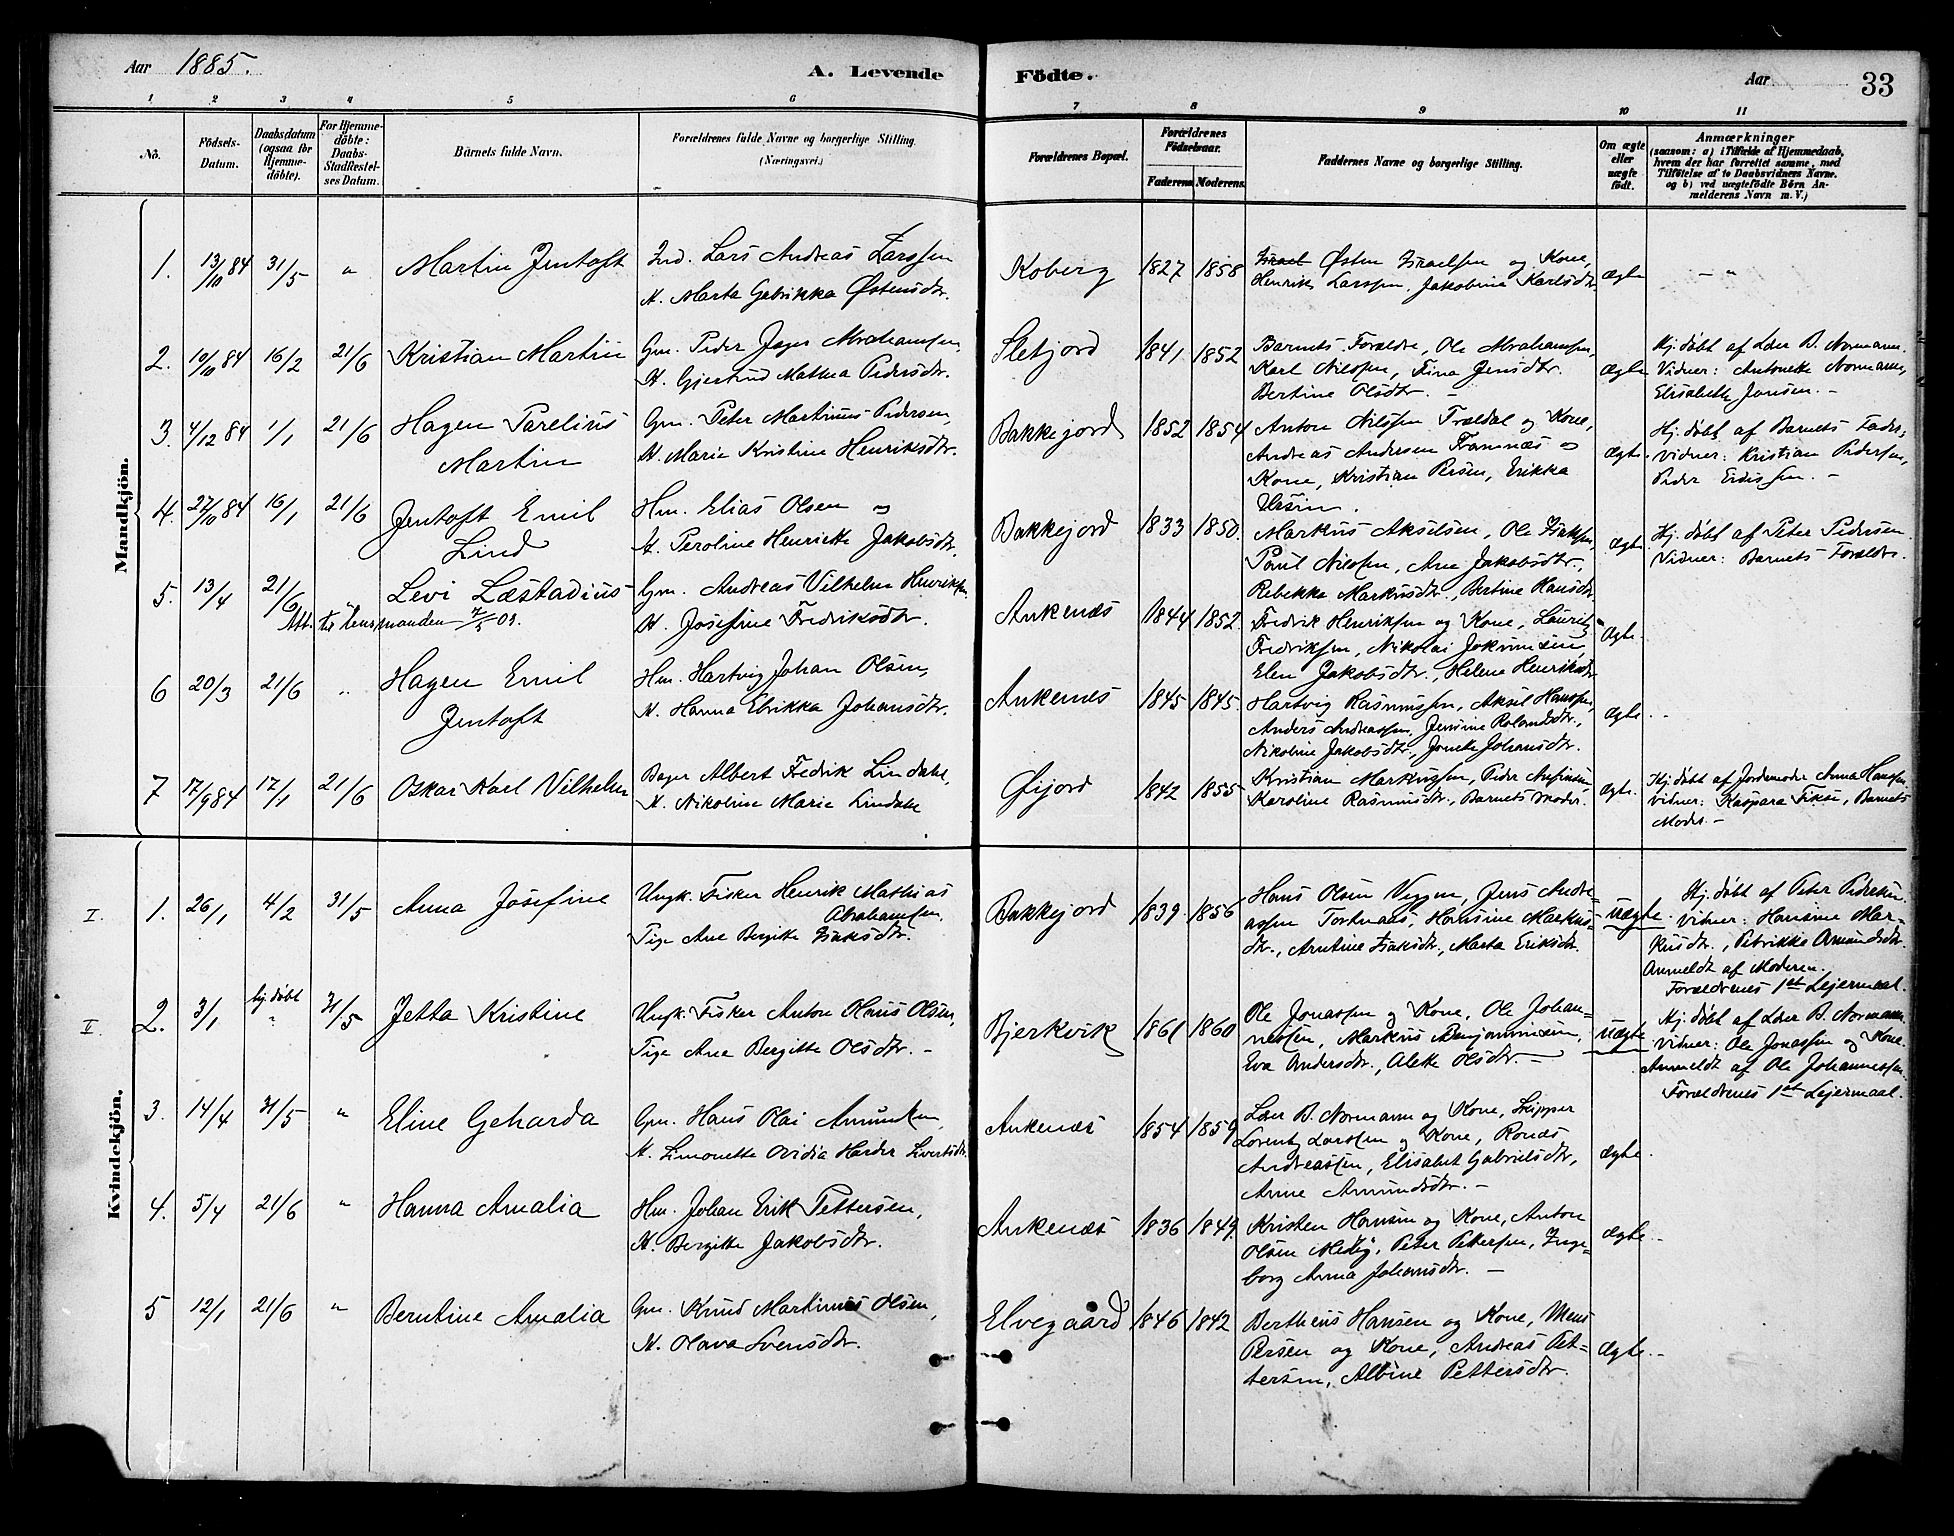 Aar 1885.
A. Levende Födte.
Aar
33
1 2 3 4 5 6 7 8 9 10 11
No.
Födsels-
Datum.
Daabsdatum
(ogsaa for
Hjemme-
döbte).
For Hjemme-
döbte:
Daabs-
Stadfæstel-
ses Datum.
Barnets fulde Navn.
Forældrenes fulde Navne og borgerlige Stilling.
(Næringsvei.)
Forældrenes Bopæl.
Forældrenes
Födselsaar.
Faderens Moderens.
Faddernes Navne og borgerlige Stilling.
Om ægte
eller
uægte
födt.
Anmærkninger
(saasom: a) i Tilfælde af Hjemmedaab,
hvem der har forrettet samme, med
Tilföielse af to Daabsvidners Navne.
og b) ved uægtefödte Börn An-
melderens Navn m. V.)
Mandkjön.
1. 13/10 84 31/5 " Martin Jentoft
Ind. Lars Andreas Larssen
H. Marta Gebrikka Østensdtr.
Koberg 1827 1858
Israel Østen Israelsen og Kone,
Henrik Larssen, Jakobine Karlsdtr
ægte - " -
2. 10/10 84 16/2 21/6 Kristian Martin
Gm. Peder Jager Abrahamsen,
H. Gjertrud Mathea Pedersdtr.
Sletjord 1841 1852
Barnets Forældre, Ole Abrahamsen,
Karl Nilssen, Fina Jensdtr.
Bertine Olsdtr. -
ægte
Hj. døbt af Lærer B. Normann.
Vidner: Antonette Normann,
Elisabeth Jonsen. -
3. 4/12 84 1/1 21/6 Hagen Parelius
Martin
Gm. Peter Martinus Pedersen,
H. Marie Kristine Henriksdtr.
Bakkejord 1852 1854
Anton Nilssen Trældal og Kone,
Andreas Andersen Framnæs og
Kone, Kristian Persen, Erikka
ægte.
Hj. døbt af Barnets Fader,
Vidner: Kristian Pedersen,
4. 27/10 84 16/1 21/6 Jentoft Emil
Lind
Hm. Elias Olsen og
H. Peroline Henriette Jakobsdtr.
Bakkejord 1833 1850.
Markus Akselsen, Ole Isaksen,
Paul Nilssen, Ane Jakobsdtr.,
Rebekka Markusdtr., Bertine Hansdtr
ægte.
Hj. døbt af Peter Pedersen
Vidner: Barnets Forældre.
5. 13/4 21/6 Levi Læstadius
Att. til lensmanden 7/5 03.
Gm. Andreas Vilhelm Henriksen
H. Josefine Fredriksdtr.
Ankenæs 1844 1852.
Fredrik Henriksen og Kone, Laurits
Fredriksen, Nikolai Jokumsen,
Elen Jakobsdtr., Helene Henriksdtr
ægte.
6 20/3 21/6 " Hagen Emil
Jentoft
Hm. Hartvig Johan Olsen,
H. Hanna Elrikka Johansdtr.
Ankenes 1845 1845.
Hartvig Rasmussen, Aksel Hanssen,
Anders Andreassen, Jensine Rolandsdtr.,
Nikoline Jakobsdtr., Jonette Johansdtr.
ægte. -
7 17/9 84 17/1 21/6 Oskar Karl Vilhelm
Bager Albert Fredrik Lindahl,
H. Nikoline Marie Lindahl
Øijord 1842 1855
Kristian Markussen, Peder Anfinsen,
Karoline Rasmusdtr., Barnets Moder.
ægte.
Hj. døbt af Jordemoder Anna Hanssen
Vidner: Kaspara Fikse, Barnets
Moder. -
Kvindekjön.
I. 1. 26/1 4/2 31/5 Anna Josefine
Ungk. Fisker Henrik Mathias
Abrahamsen,
Pige Ane Bergitte Isaksdtr.
Bakkejord 1839 1856
Hans Olsen Veggen, Jens Andre-
assen Tortnaas, Hansine Markus-
dtr., Arntine Isaksdtr., Marta Eriksdtr.
uægte.
Hj. døbt af Peter Pedersen.
Vidner: Hansine Mar-
kusdtr., Petrikke Amundsdtr.
Anmeldt af Moderen.
Forældrenes 1ste Lejermaal.
II. 2. 3/1 hj. døbt " 31/5 Jetta Kristine
Ungk. Fisker Anton Hans Olsen,
Pige Ane Bergitte Olsdtr. -
Bjerkvik 1861 1860
Ole Jonassen og Kone, Ole Johan-
nessen, Markus Benjaminsen,
Eva Andersdtr., Alette Olsdtr. -
uægte
Hj. døbt af Lærer B. Normann
Vidner: Ole Jonassen og Kone.
Anmeldt af Ole Johannessen.
Forældrenes 1ste Lejermaal.
3. 14/4 31/5 " Eline Geharda
Gm. Hans Olai Amundsen,
H. Simonette Ovidia Harder Sivertsdtr.
Ankenæs 1854 1859
Lærer B. Normann og Kone, Skipper
Lorents Larssen og Kone,
Andreassen, Elisabet Gabrielsdtr,
Anne Amundsdtr. -
ægte.
4. 5/4 21/6 " Hanna Amalia
Hm. Johan Erik Pettersen,
H. Bergitte Jakobsdtr.
Ankenæs 1836 1849.
Kristen Hansen og Kone, Anton
Olsen Medby, Peter Pettersen, Inge-
borg Anna Johansdtr. -
ægte. -
5 12/1 21/6 " Berntine Amalia
Gm. Knud Martinus Olsen,
H. Olava Svensdtr.
Elvegaard 1846 1842
Bertheus Hansen og Kone, Mons
Persen og Kone, Andreas Pet-
tersen, Albine Pettersdtr.
ægte. -